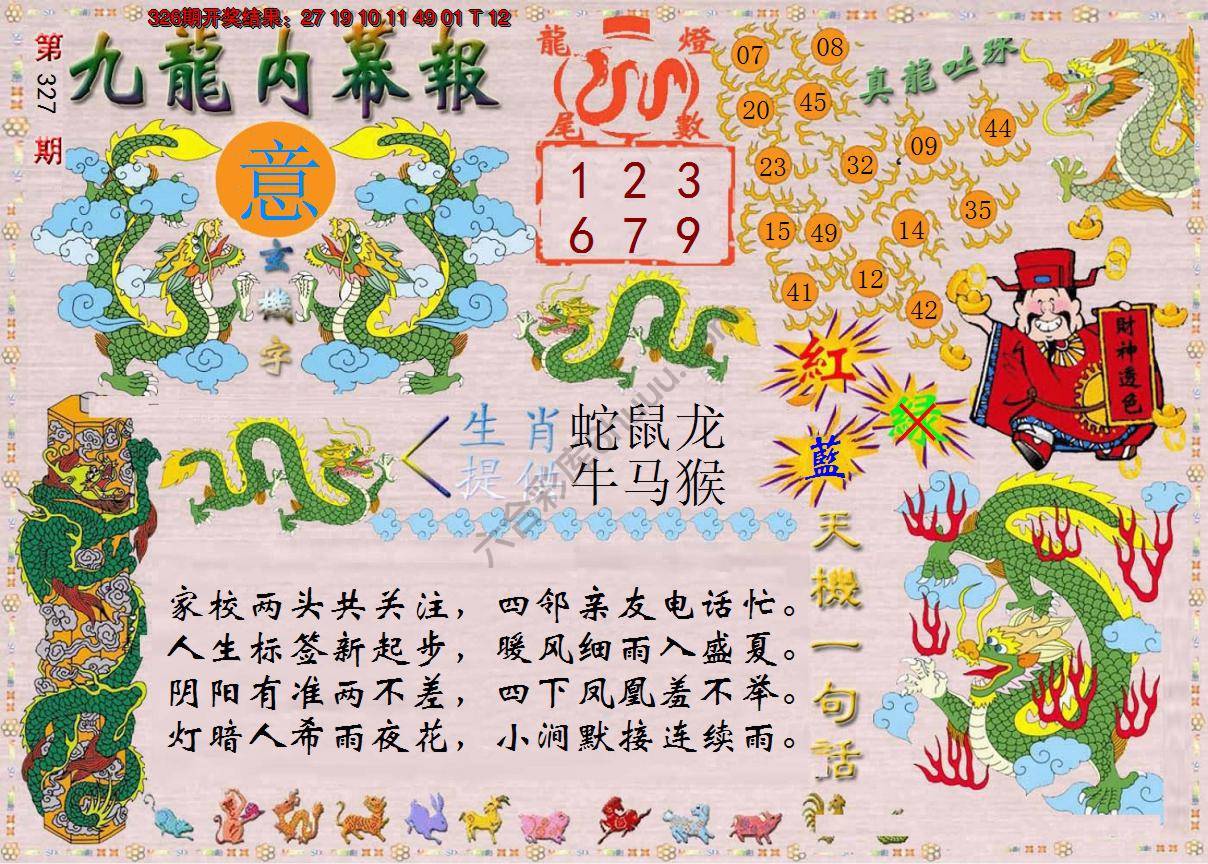 326期开奖结果：27 19 10 11 49 01 T 12
第327期
九龍内幕報
意
玄機字
龍燈
尾數
1 2 3
6 7 9
真龍吐珠
07 08
20 45
23 32 09 44
15 49 14 35
41 12 42
財神透色
紅
綠
藍
生肖 蛇鼠龙
提供 牛马猴
天機一句話
家校两头共关注，四邻亲友电话忙。
人生标签新起步，暖风细雨入盛夏。
阴阳有准两不差，四下凤凰羞不举。
灯暗人希雨夜花，小涧默接连续雨。